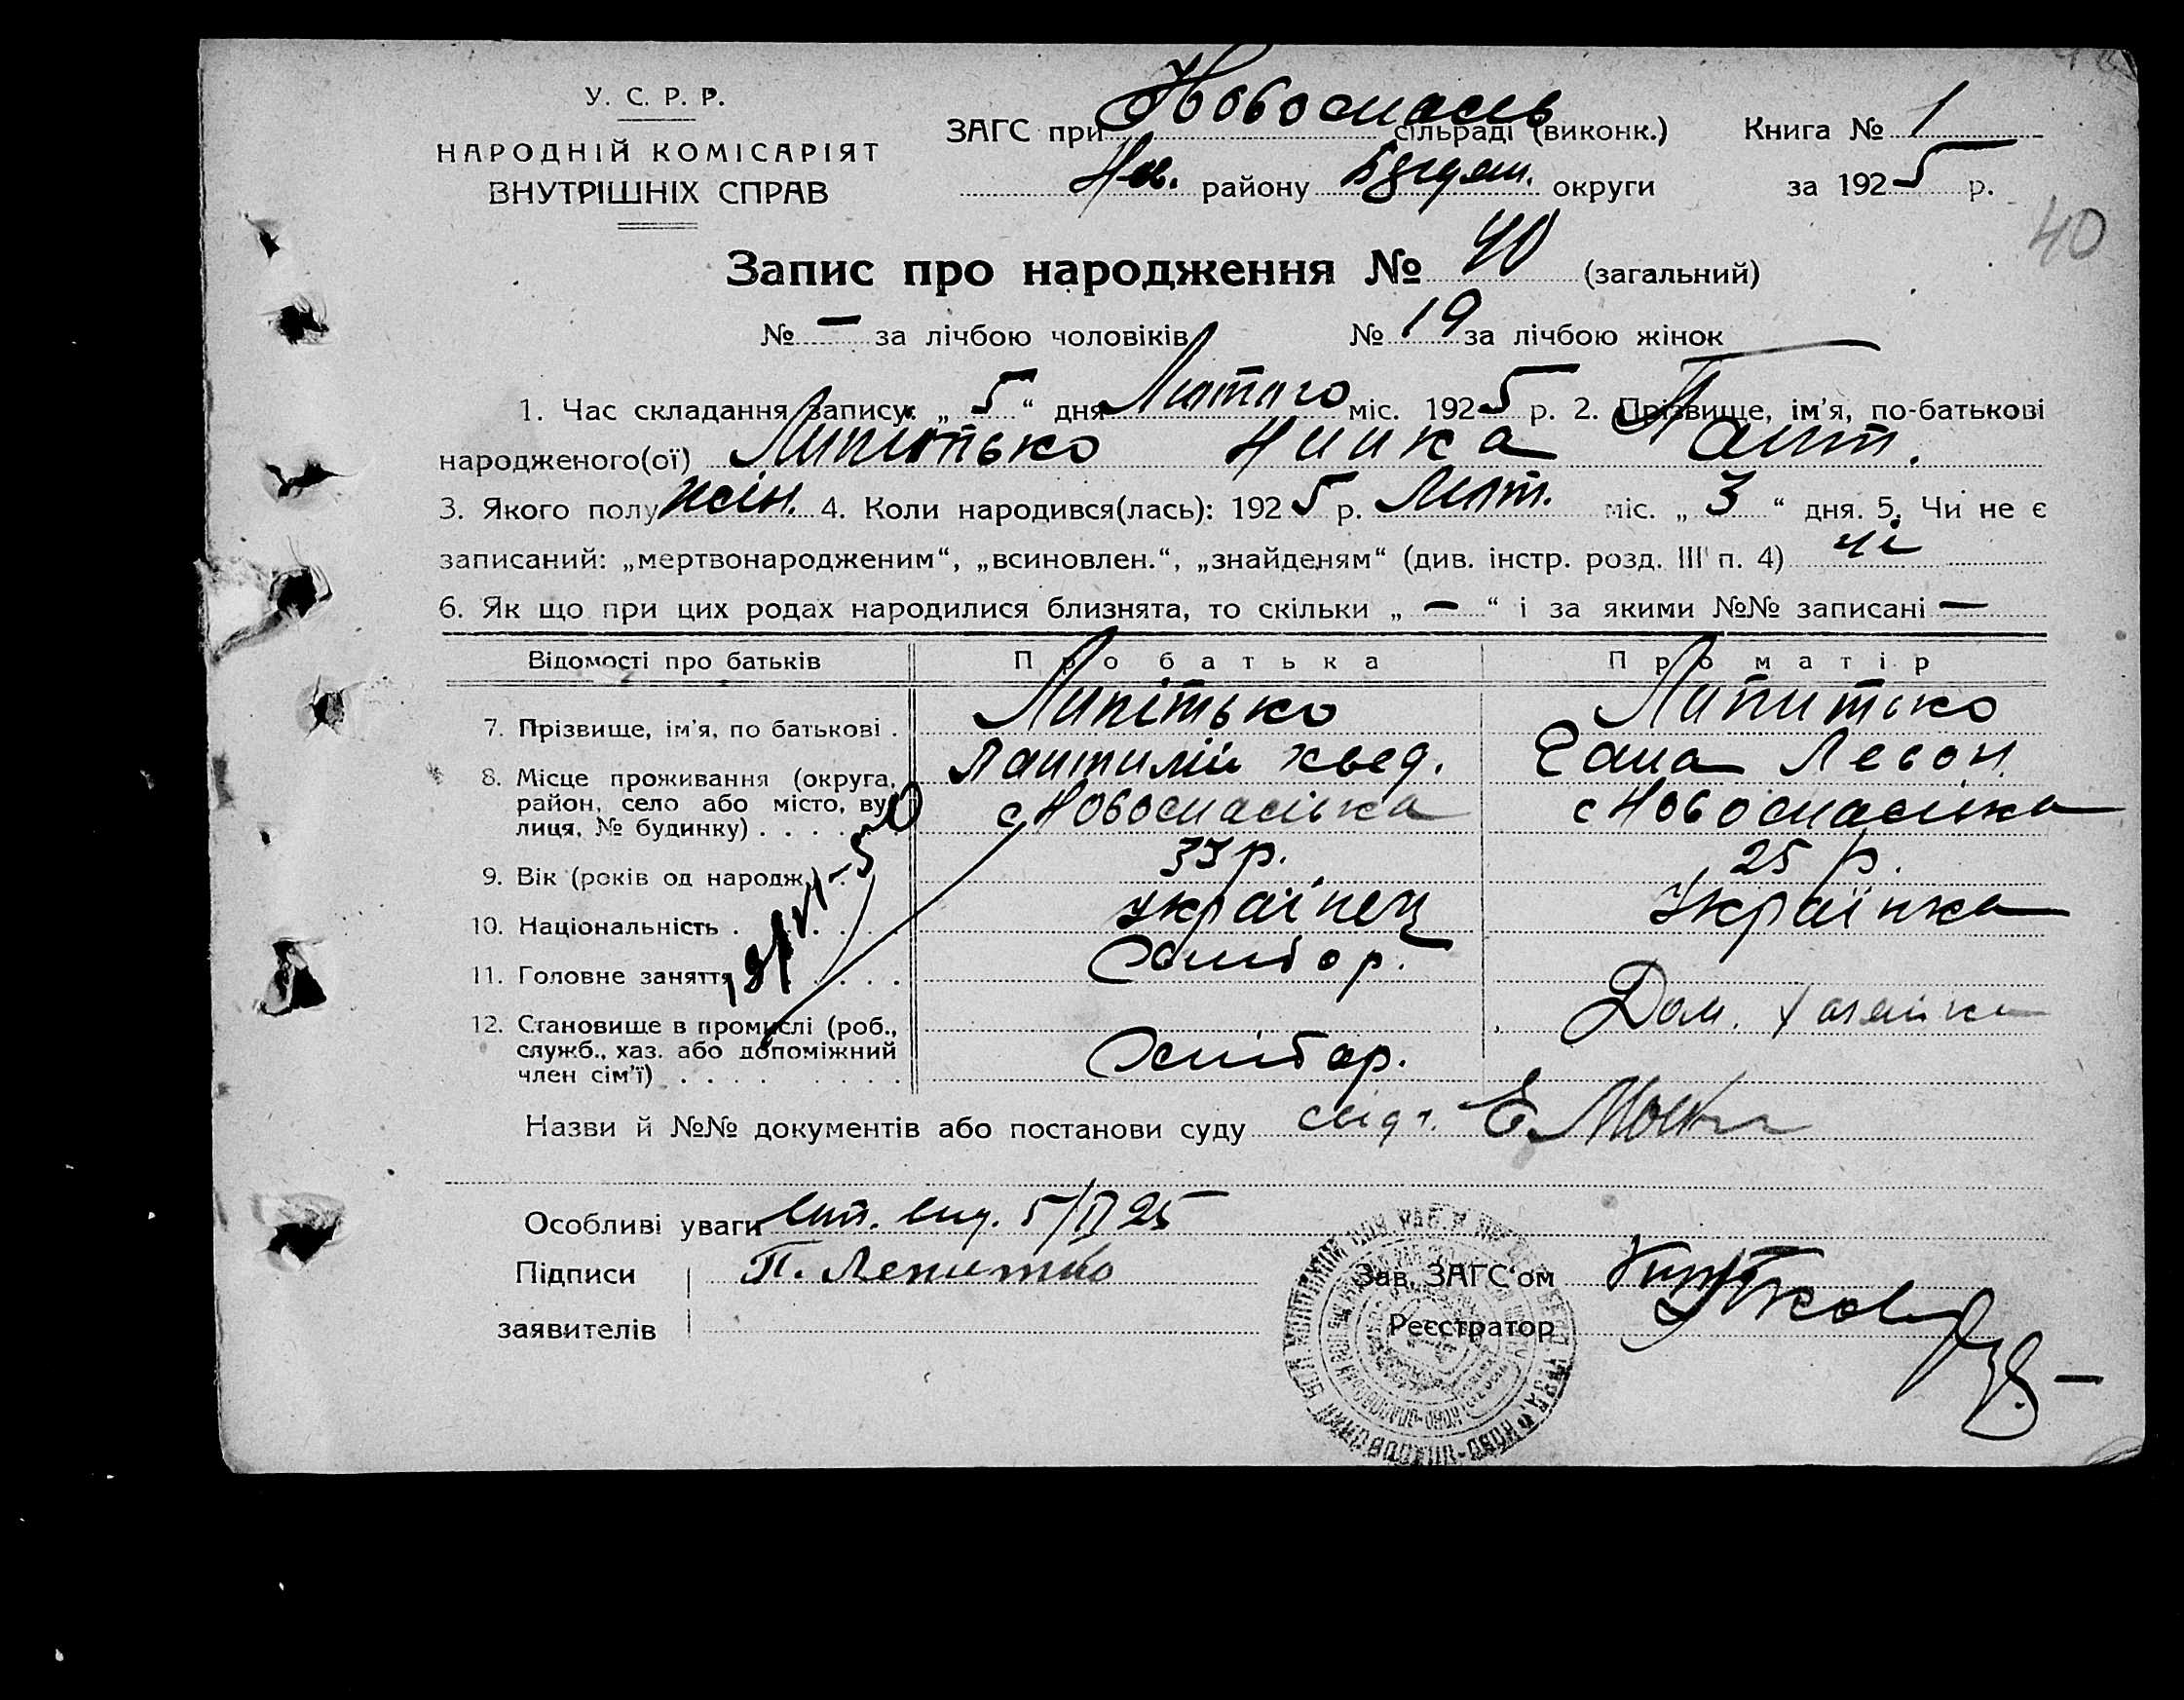 У. С. Р. Р.
НАРОДНІЙ КОМІСАРІЯТ
ВНУТРІШНІХ СПРАВ
ЗАГС при Новоспасів сільраді (виконк.) Книга № 1
Нов. району Бердян. округи за 1925 р.
40
Запис про народження № 40 (загальний)
№ — за лічбою чоловіків № 19 за лічбою жінок
1. Час складання запису: „ 5 “ дня Лютого міс. 1925 р. 2. Прізвище, ім'я, по-батькові
народженого(ої) Липітько Нинка Пант.
3. Якого полу жін. 4. Коли народився(лась): 1925 р. Лют. міс. „ 3 “ дня. 5. Чи не є
записаний: „мертвонародженим“, „всиновлен.“, „знайденям“ (див. інстр. розд. III п. 4) ні
6. Як що при цих родах народилися близнята, то скільки „ — “ і за якими №№ записані —
Відомості про батьків Про батька Про матір
7. Прізвище, ім'я, по батькові . Липітько Липитько
Пантилій Хвед. Гана Левон.
8. Місце проживання (округа, район, село або місто, вулиця, № будинку) . . . . с Новоспасівка с Новоспасівка
9. Вік (років од народж.) . . 25 р.
10. Національність . . . . . Українець Українка
11. Головне заняття . . . . Хлібор.
12. Становище в промислі (роб., служб., хаз. або допоміжний член сім'ї) . . . . . . . . . Хлібор. Дом. хазяйка
Назви й №№ документів або постанови суду свідч. Е.
Особливі уваги 5/II 25
Підписи П. Лепитько Зав. ЗАГС'ом
заявителів Реєстратор